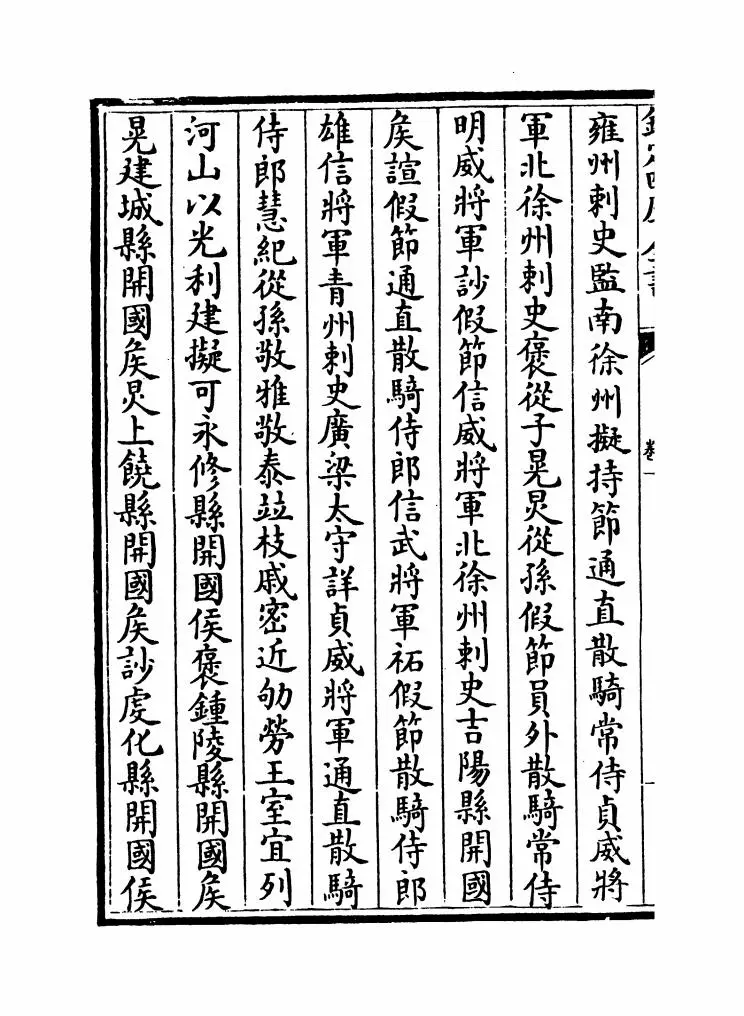 雍州刺史監南徐州擬持節通直散騎常侍貞威將
軍北徐州刺史褒從子晃炅從孫假節員外散騎常侍
明威將軍訬假節信威將軍北徐州刺史吉陽縣開國
矦諠假節通直散騎侍郎信武將軍祏假節散騎侍郎
雄信將軍青州刺史廣梁太守詳貞威將軍通直散騎
侍郎慧紀從孫敬雅敬泰竝枝戚密近劬勞王室宜列
河山以光利建擬可永修縣開國侯褒鍾陵縣開國矦
晃建城縣開國矦炅上饒縣開國矦訬虔化縣開國侯